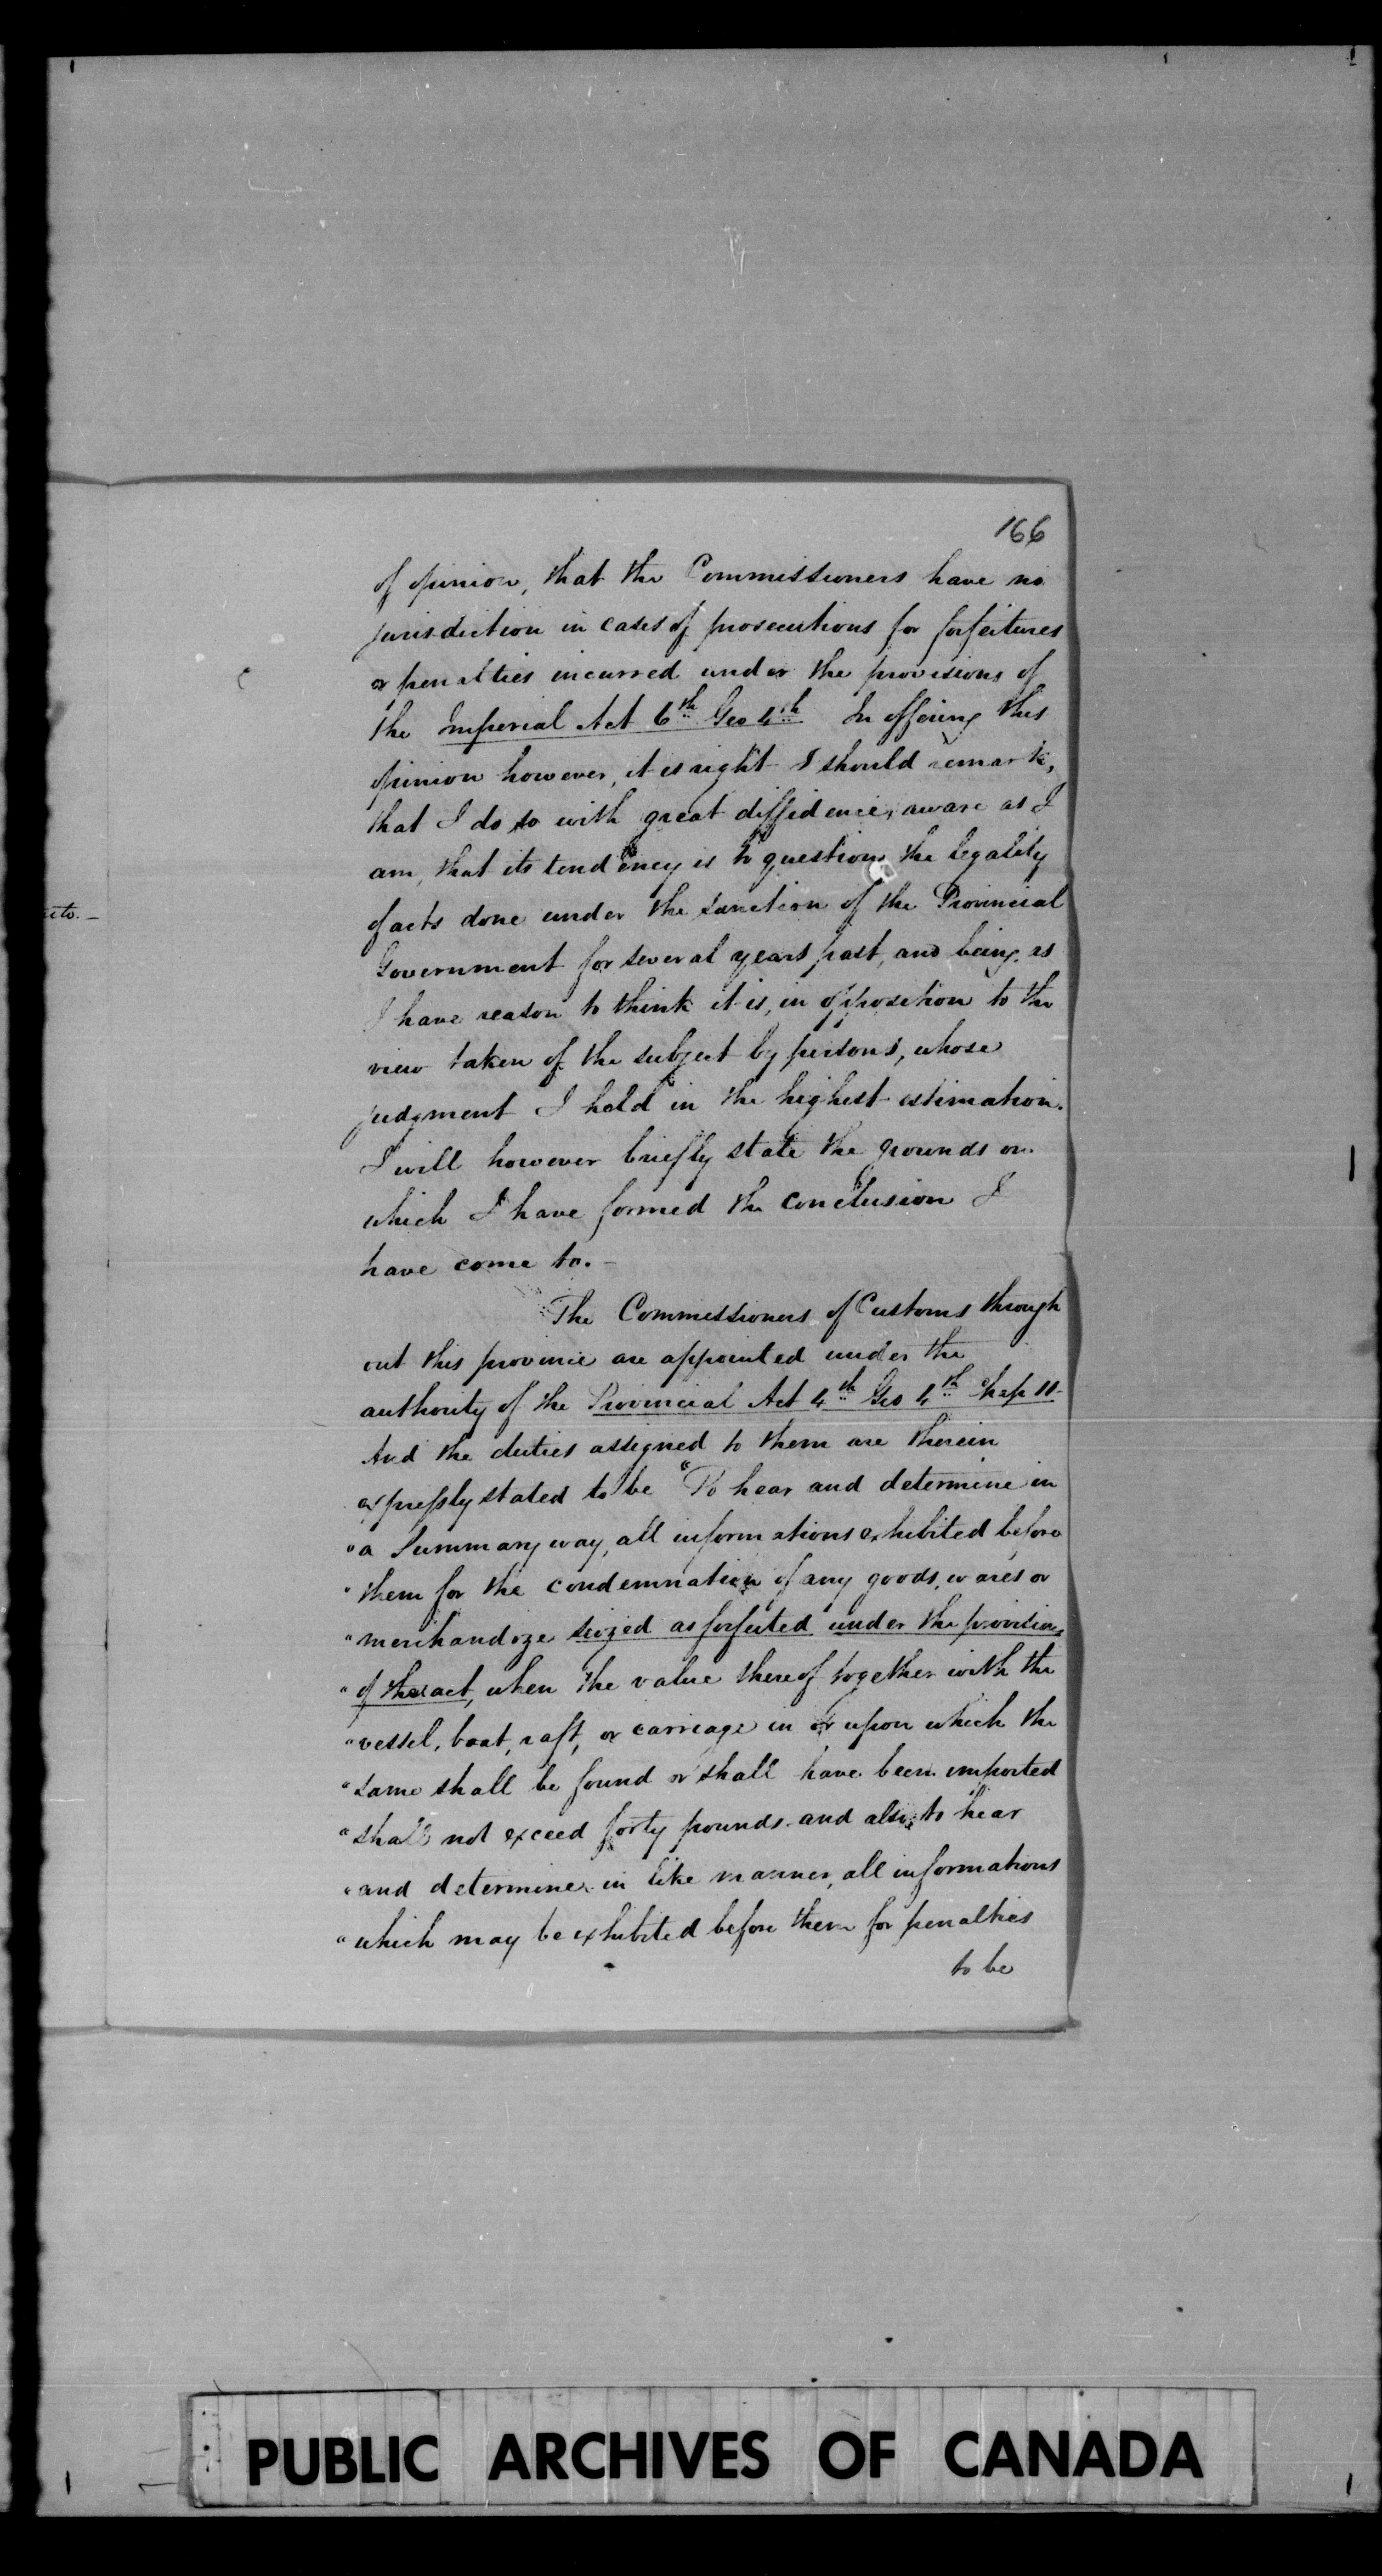 166
of opinion, that the Commissioners have no
jurisdiction in cases of prosecutions for forfeitures
or penalties incurred under the provisions of
the Imperial Act 6th Geo 4th In offering this
opinion however, it is right I should remark,
that I do so with great diffidence, aware as I
am, that its tendency is to question the legality
of acts done under the sanction of the Provincial
Government for several years past, and being, as
I have reason to think it is, in opposition to the
view taken of the subject by persons, whose
judgment I hold in the highest estimation.
I will however briefly state the grounds on
which I have formed the conclusion I
have come to. -
The Commissioners of Customs through
out this province are appointed under the
authority of the Provincial Act 4th Geo 4th Chap 11-
And the duties assigned to them are therein
expressly stated to be "To hear and determine in
"a Summary way, all informations exhibited before
"them for the condemnation of any goods, wares or
"merchandize seized as forfeited under the provisions
"of the act, when the value thereof together with the
"vessel, boat, raft, or carriage in or upon which the
"same shall be found or shall have been imported
"shall not exceed forty pounds. and also, to hear
"and determine in like manner, all informations
"which may be exhibited before them for penalties
to be
PUBLIC ARCHIVES OF CANADA